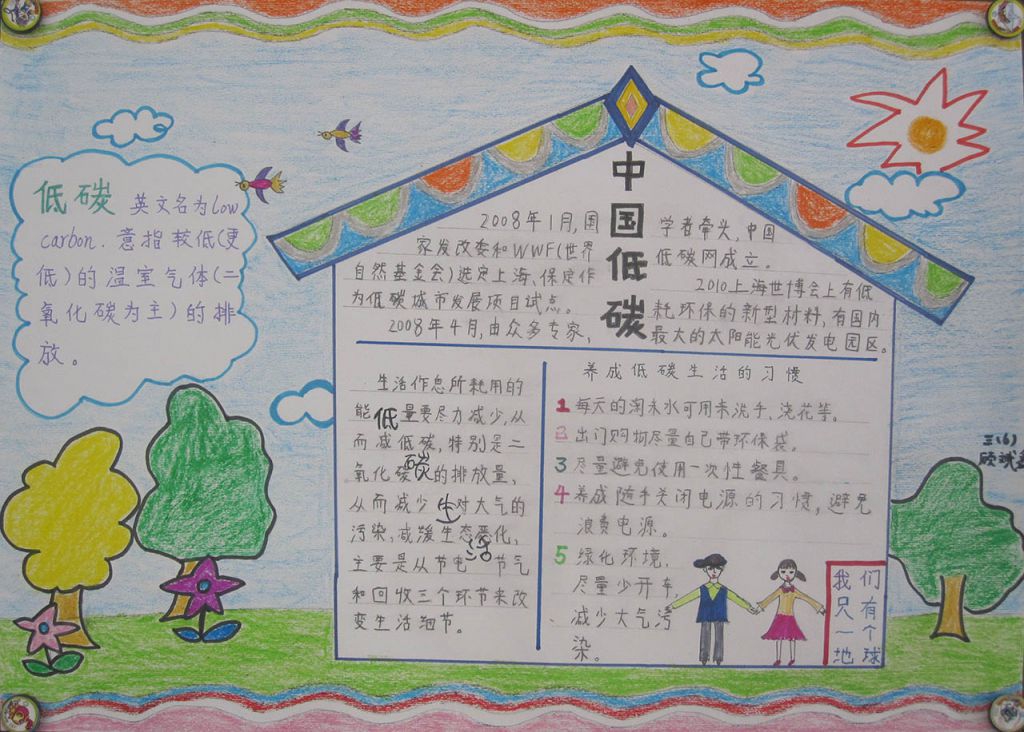 低碳 英文名为low
carbon.意指较低(更
低)的温室气体(二
氧化碳为主)的排
放。
中国低碳
2008年1月,国
家发改委和WWF(世界
自然基金会)选定上海、保定作
为低碳城市发展项目试点。
2008年4月,由众多专家、
学者牵头,中国
低碳网成立。
2010上海世博会上有低
耗环保的新型材料,有国内
最大的太阳能光伏发电园区。
低碳生活
生活作息所耗用的
能量要尽力减少,从
而减低碳,特别是二
氧化碳的排放量,
从而减少对大气的
污染,减缓生态恶化,
主要是从节电节气
和回收三个环节来改
变生活细节。
养成低碳生活的习惯
1 每天的淘米水可用来洗手、浇花等。
2 出门购物尽量自己带环保袋。
3 尽量避免使用一次性餐具。
4 养成随手关闭电源的习惯,避免
浪费电源。
5 绿化环境,
尽量少开车,
减少大气污
染。
我们
只有
一个
地球
三(6)